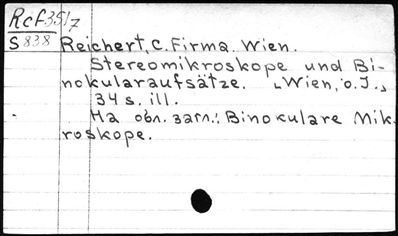 Rcf35/7
S 838
Reichert, C. Firma. Wien.
Stereomikroskope und Bi-
nokularaufsätze. [Wien, o.J.]
34 s. ill.
На обл. загл.: Binokulare Mik-
roskope.